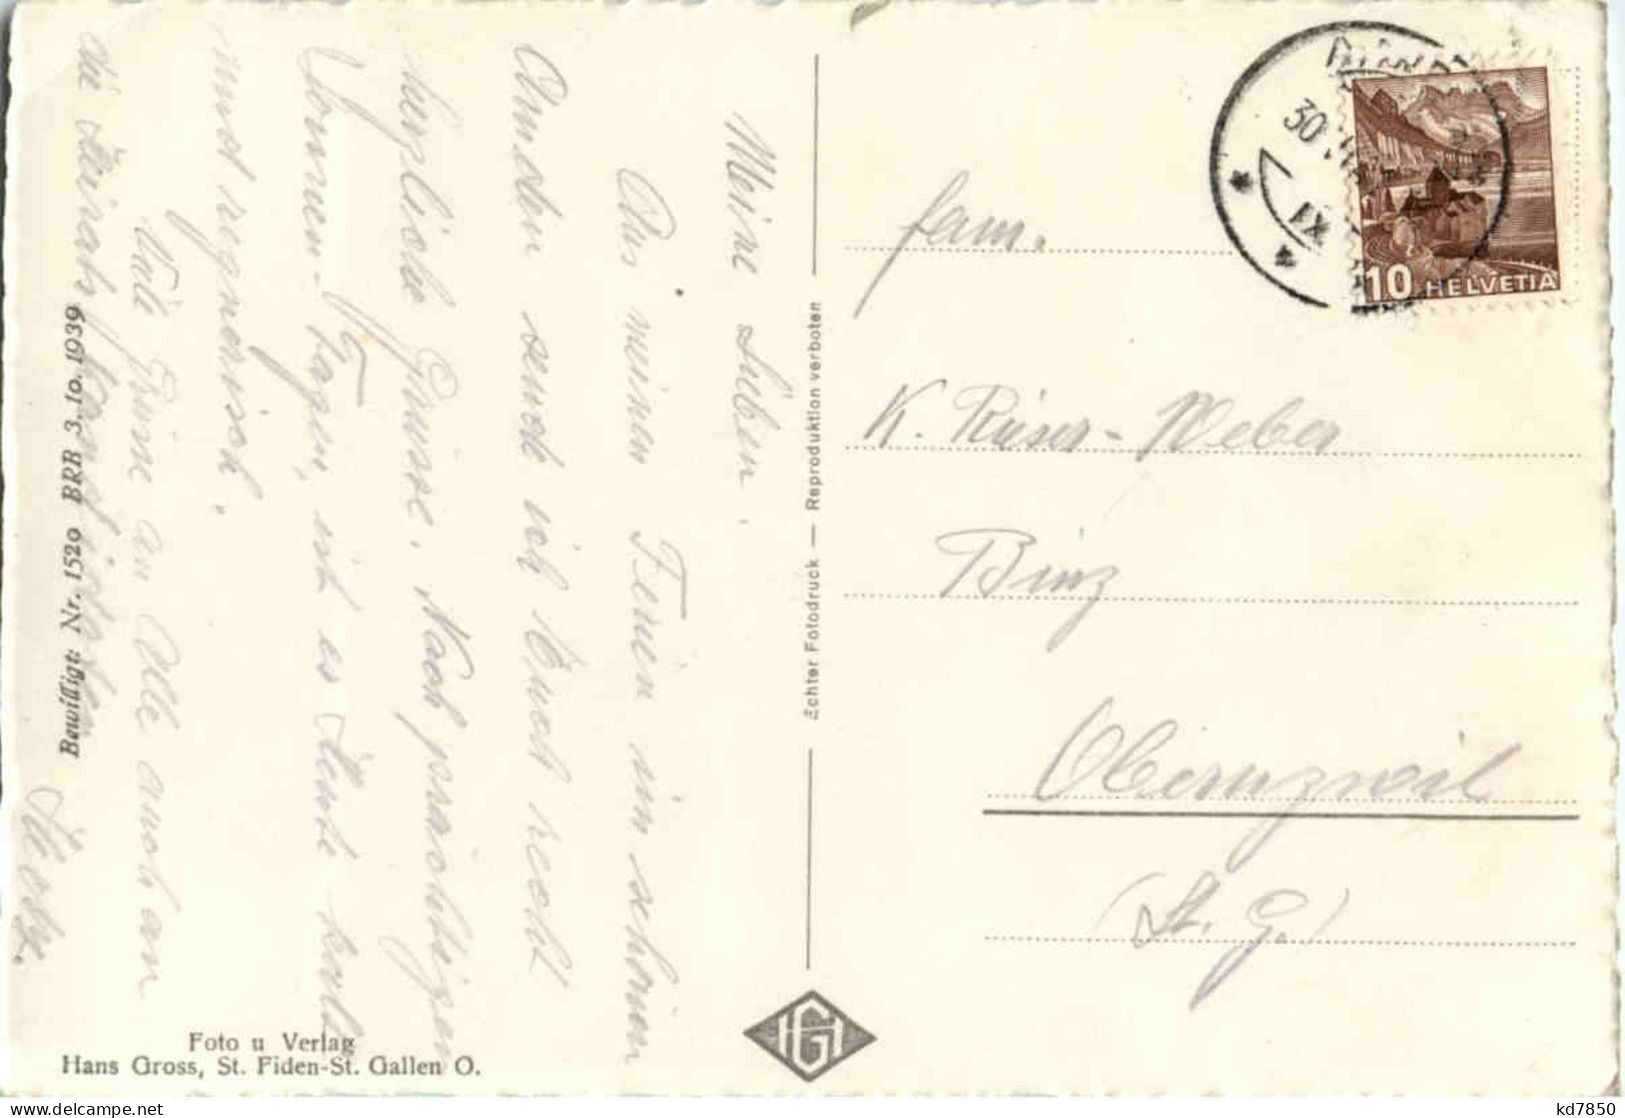 Meine Lieben.
Aus meinen Ferien im schönen
Amden sende ich Euch recht
herzliche Grüsse. Nach prächtigen
Sonnen-Tagen, ist es Heute kalt
und regnerisch.
Viele Grüsse an Alle auch an
die Heirats
Bewilligt: Nr. 1520 BRB 3. 10. 1939
Foto u Verlag
Hans Gross, St. Fiden-St. Gallen O.
Echter Fotodruck — Reproduktion verboten
HG
30
IX
10 HELVETIA
Fam.
K. Rüser-Weber
Binz
Oberuzwil
(St. G.)
kd7850